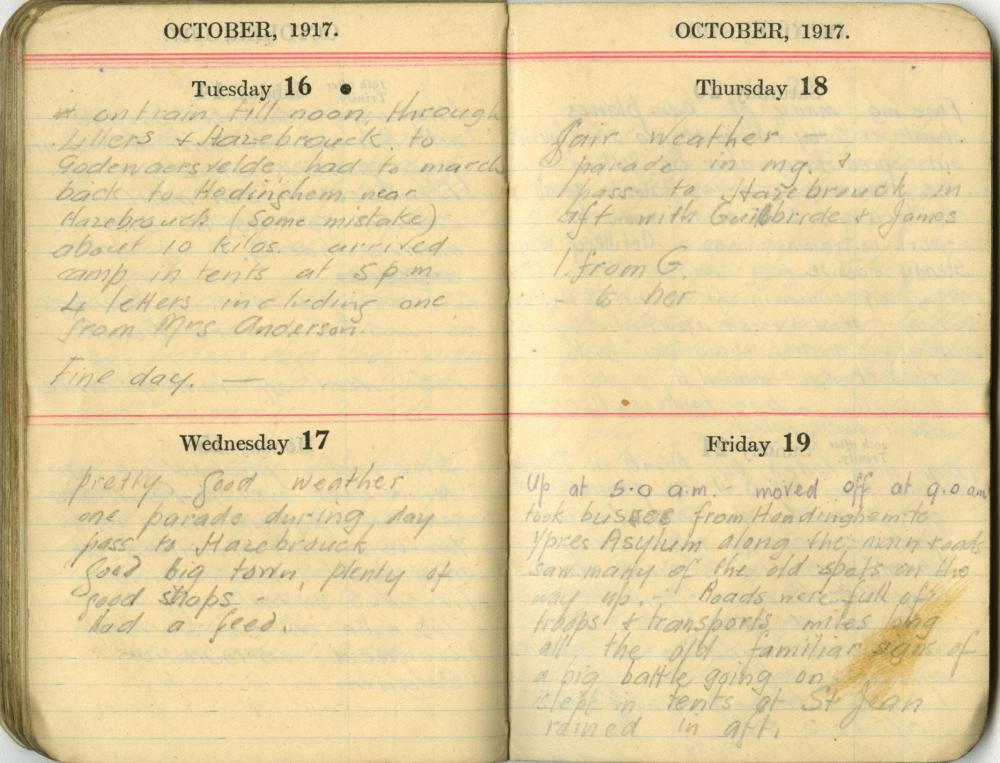 OCTOBER, 1917.
Tuesday 16
on train till noon, through
Lillers & Hazebrouck to
Godewaersvelde, had to march
back to Hodinghem near
Hazebrouck (some mistake)
about 10 kilos. arrived
camp in tents at 5 p.m.
4 letters including one
from Mrs Anderson.
Fine day. —
Wednesday 17
pretty good weather
one parade during day
pass to Hazebrouck
good big town, plenty of
good shops -
had a feed.
OCTOBER, 1917.
Thursday 18
fair weather —
parade in mg. &
pass to Hazebrouck in
aft with Guilbride & James
1. from G.
- to her
Friday 19
Up at 5.0 a.m. - moved off at 9.0 am
took busses from Hondinghem to
Ypres Asylum along the main roads
saw many of the old spots on the
way up. - Roads were full of
troops & transports miles long
all the old familiar signs of
a big battle going on
slept in tents at St Jean
rained in aft.